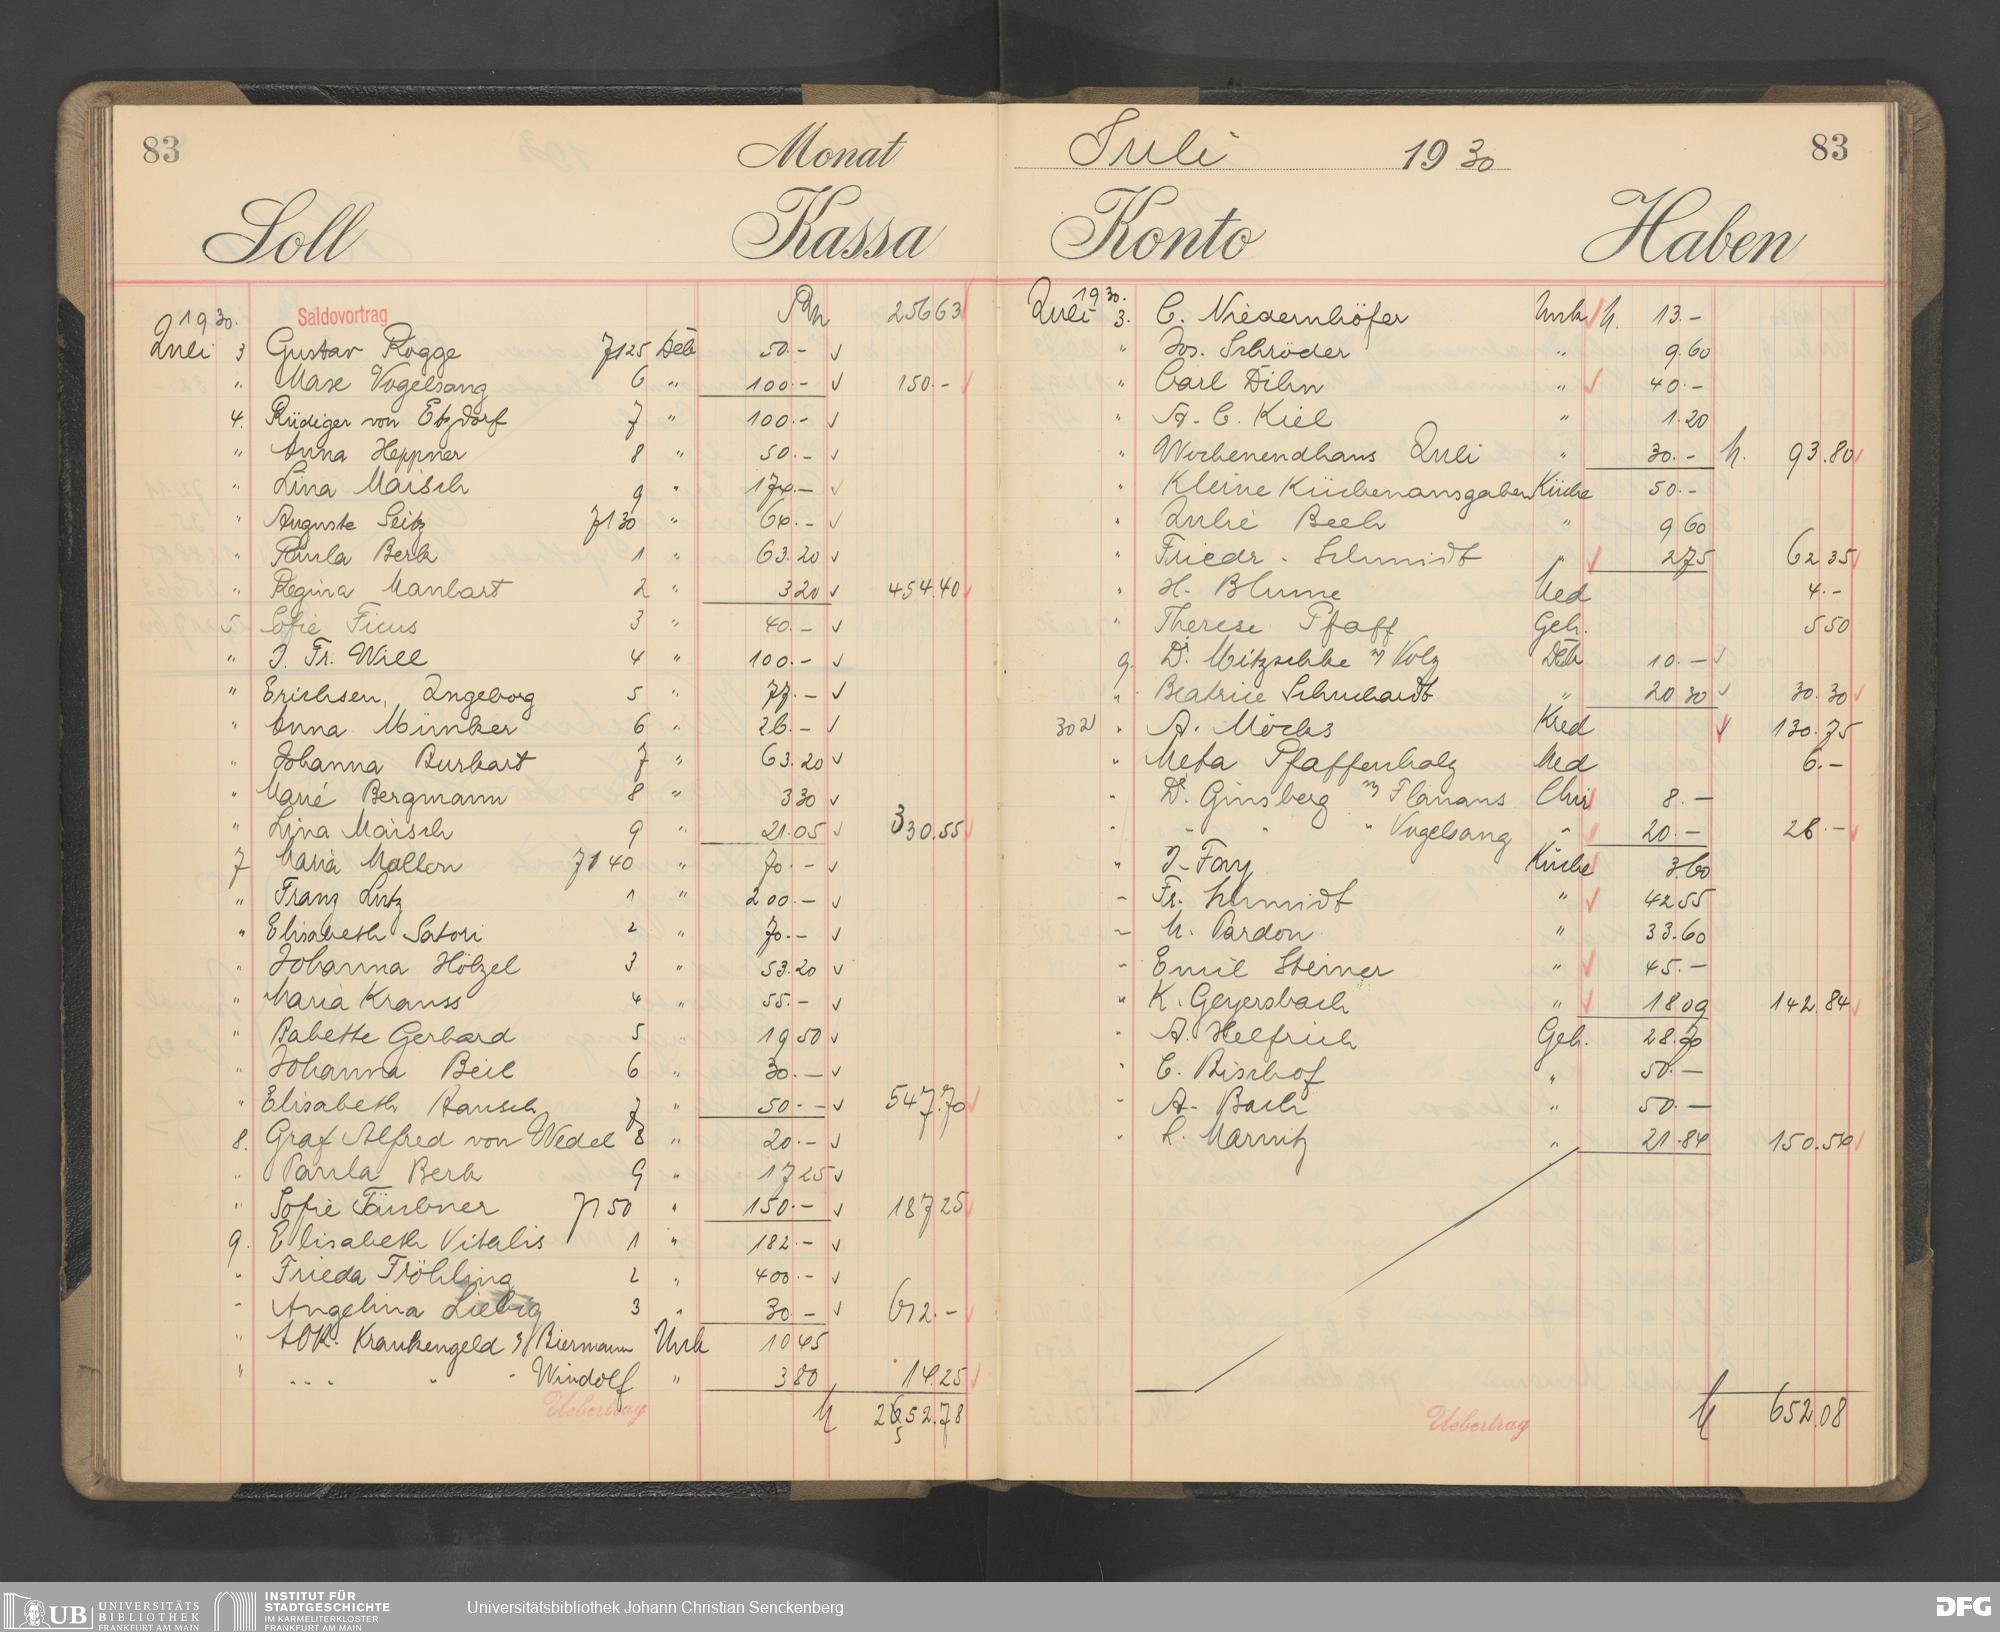 83
Monat
Soll
Kassa
1930.
Saldovortrag
Rm 256 63
Juli 3 Gustav Rogge 7125 Deb 50.-
" Max Vogelsang 6 " 100.- 150.-
4. Rüdiger von Etzdorf 7 " 100.-
" Anna Heppner 8 " 50.-
" Lina Maisch 9 " 174.-
" Auguste Seitz 7130 " 64.-
" Paula Berk 1 " 63.20
" Regina Manhart 2 " 3 20 454.40
5 Sofie Ficus 3 " 40.-
" J. Fr. Will 4 " 100.-
" Erichsen, Ingeborg 5 " 77.-
" Anna Münker 6 " 26.-
" Johanna Burkart 7 " 63.20
" Marie Bergmann 8 " 3 30
" Lina Maisch 9 " 21.05 330.55
7 Maria Mallon 7140 " 70.-
" Franz Lutz 1 " 200.-
" Elisabeth Satori 2 " 70.-
" Johanna Hölzel 3 " 53.20
" Maria Krauss 4 " 55.-
" Babette Gerhard 5 " 19 50
" Johanna Beil 6 " 30.-
" Elisabeth Rausch 7 " 50.- 547.70
8. Graf Alfred von Wedel 8 " 20.-
" Paula Berk 9 " 17 25
" Sofie Täubner 7150 " 150.- 187 25
9. Elisabeth Vitalis 1 " 182.-
" Frieda Fröhling 2 " 400.-
" Angelina Liebig 3 " 30.- 612.-
" AOK. Krankengeld f/ Biermann Unk 10 45
" " " " Windolf " 3 80 14.25
Uebertrag
2652.78
5
Juli 1930
83
Konto
Haben
1930.
Juli 3. C. Niedernhöfer Unk 13.-
" Jos. Schröder " 9.60
" Carl Dihn " 40.-
" A. C. Kiel " 1.20
" Wochenendhaus Juli " 30.- 93.80
" Kleine Küchenausgaben Küche 50.-
" Julie Bech " 9 60
" Friedr. Schmidt " 2 75 62 35
" H. Blume Med 4.-
" Therese Pfaff Geh. 5 50
9. Dr. Mitzschke Volz Deb 10.-
" Beatrice Schuchardt " 20 30 30.30
302 " A. Möcks Kred 130.75
" Meta Pfaffenholz Med 6.-
" Dr. Ginsberg Flanaus Chir 8.-
" " " " Vogelsang " 20.- 28.-
" J. Fay Küche 3.60
" Fr. Schmidt " 42 55
" M. Pardon " 33.60
" Emil Steiner " 45.-
" K. Geyersbach " 18 09 142.84
" A. Helfrich Geh. 28.70
" C. Bischof " 50.-
" A. Bach " 50.-
" L. Marnitz " 21.84 150.54
Uebertrag
652.08
UB
UNIVERSITÄTS
BIBLIOTHEK
FRANKFURT AM MAIN
INSTITUT FÜR
STADTGESCHICHTE
IM KARMELITERKLOSTER
FRANKFURT AM MAIN
Universitätsbibliothek Johann Christian Senckenberg
DFG